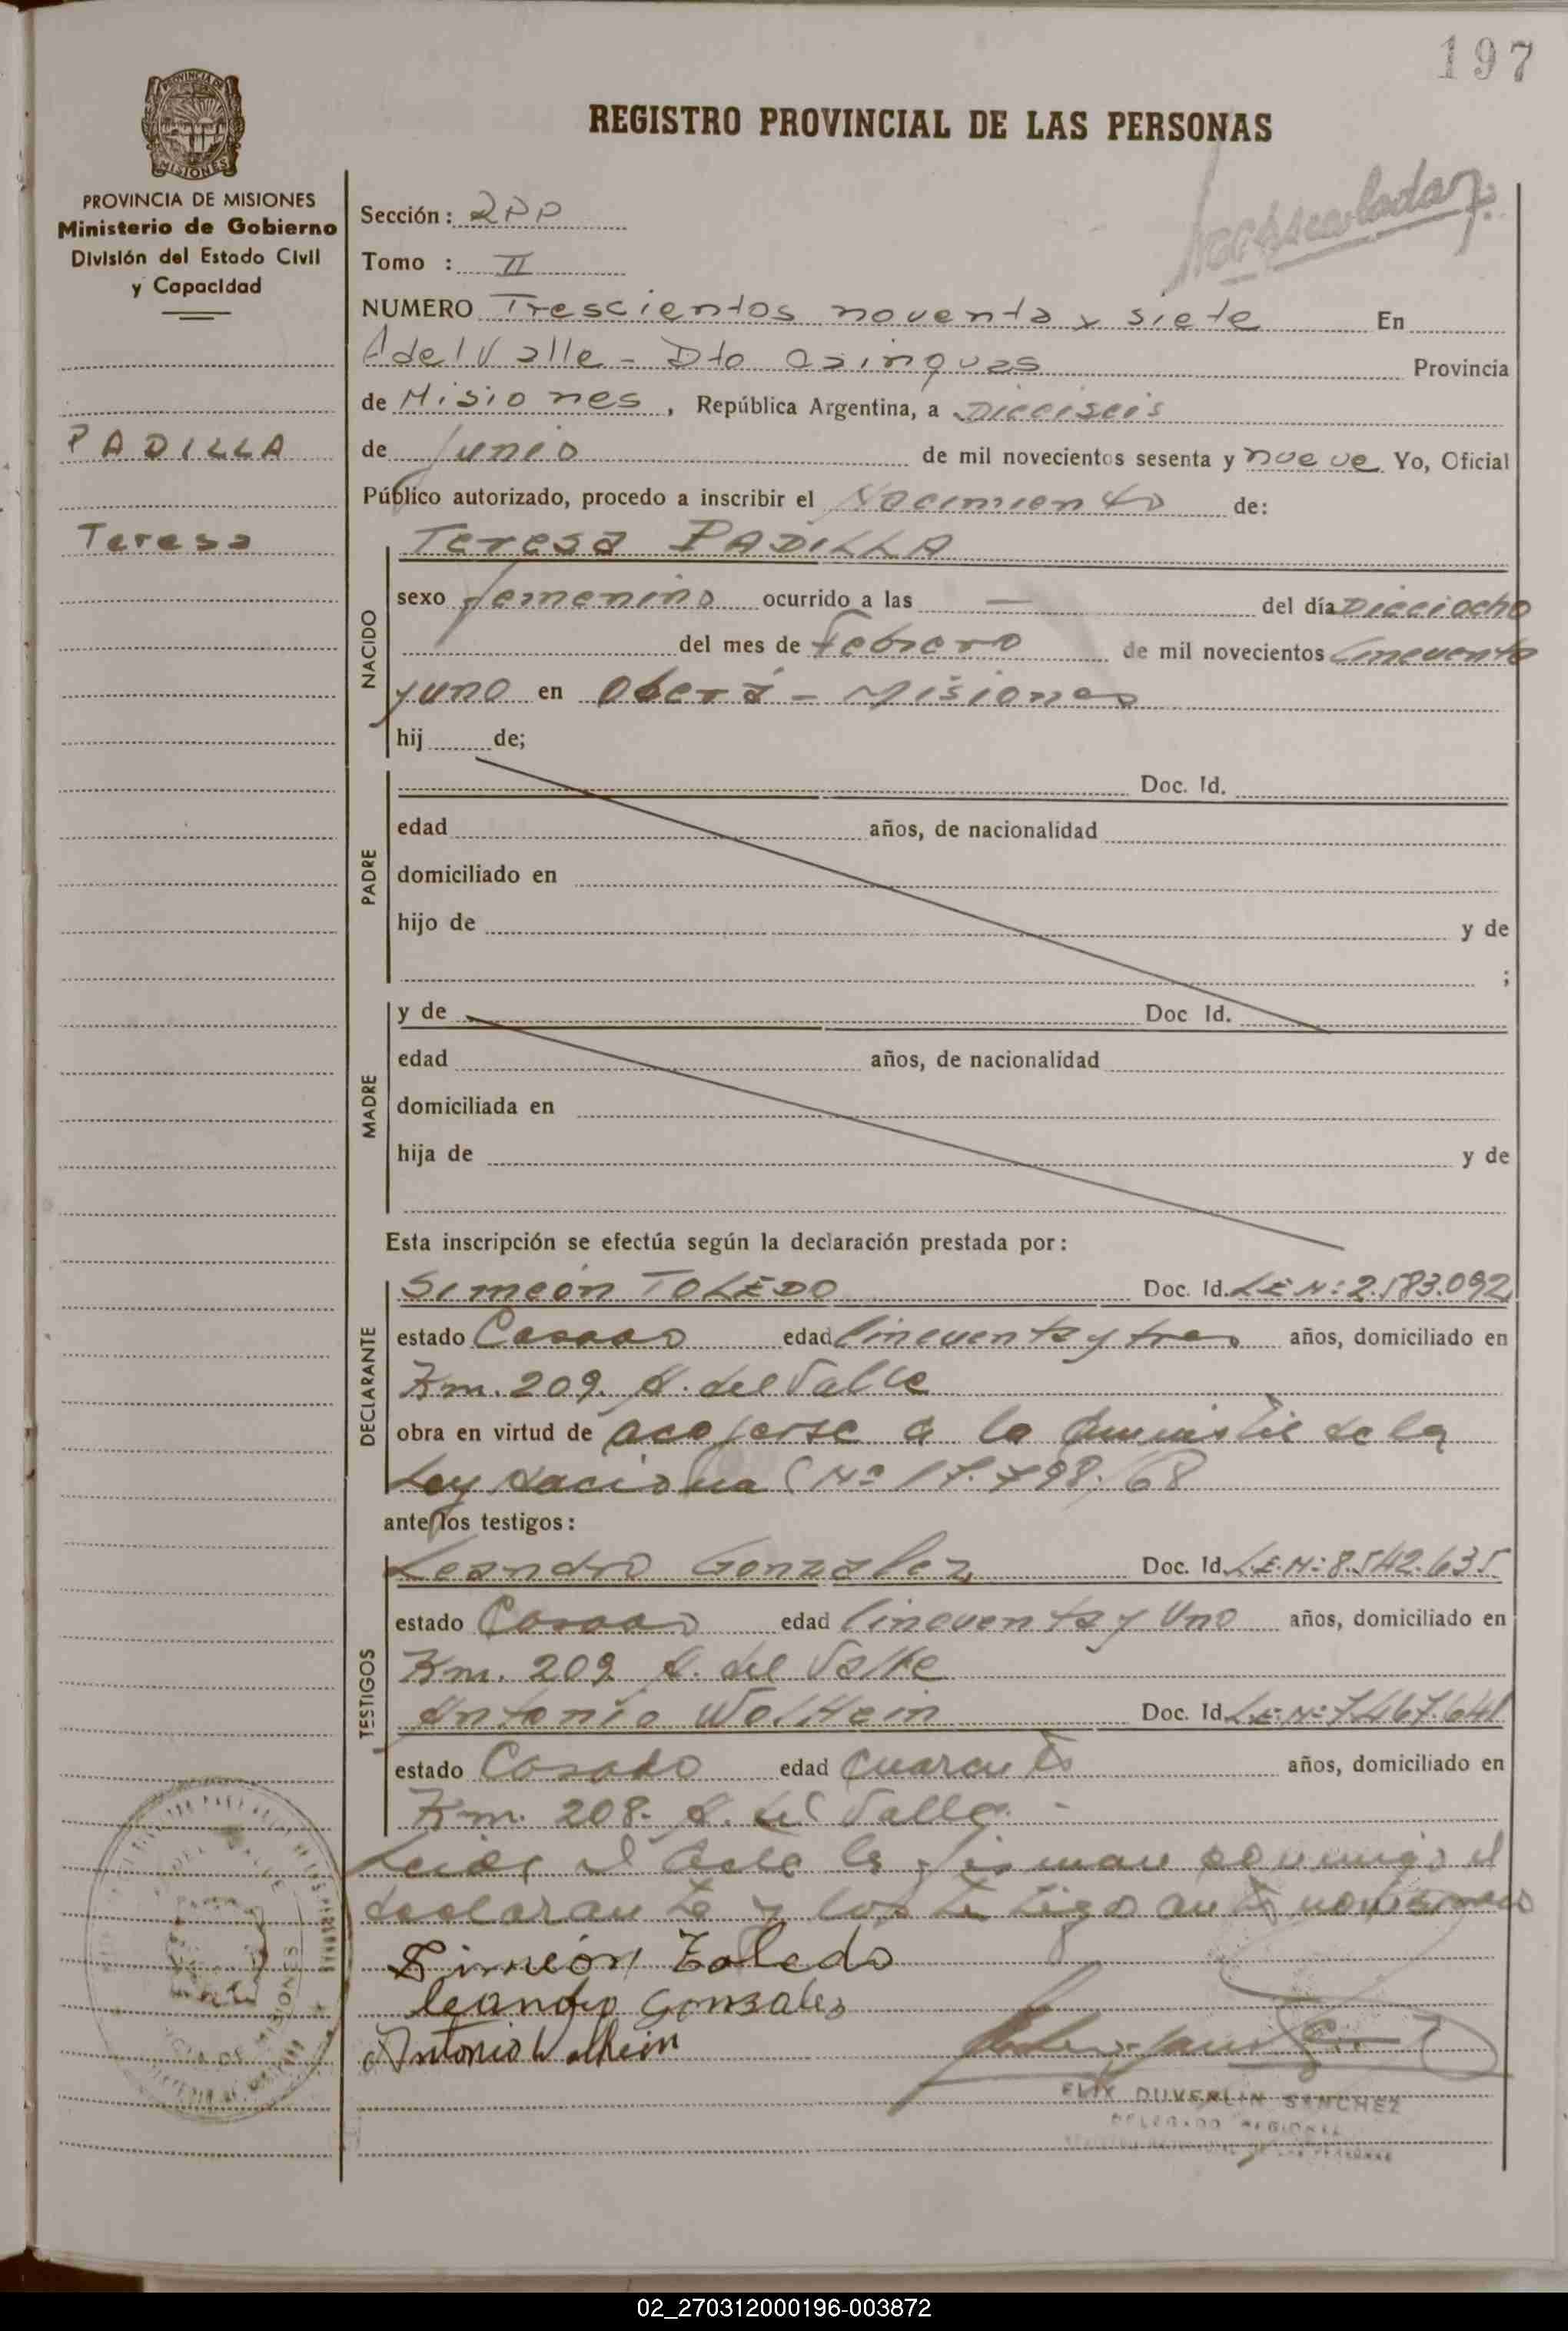 197
REGISTRO PROVINCIAL DE LAS PERSONAS
PROVINCIA DE
MISIONES
PROVINCIA DE MISIONES
Ministerio de Gobierno
División del Estado Civil
y Capacidad
PADILLA
Teresa
Sección: RPP
Tomo : II
NUMERO Trescientos noventa y siete En
A del Valle - Dto Cainguas Provincia
de Misiones, República Argentina, a Dieciseis
de Junio de mil novecientos sesenta y nueve Yo, Oficial
Público autorizado, procedo a inscribir el Nacimiento de:
Teresa PADILLA
NACIDO
sexo femenino ocurrido a las — del día Dieciocho
del mes de Febrero de mil novecientos Cincuenta
y uno en Oberá - Misiones
hij de;
PADRE
Doc. Id.
edad años, de nacionalidad
domiciliado en
hijo de y de
;
MADRE
y de Doc Id.
edad años, de nacionalidad
domiciliada en
hija de y de
Esta inscripción se efectúa según la declaración prestada por:
DECLARANTE
Simeón TOLEDO Doc. Id. L.E.Nº: 2.583.092
estado Casado edad Cincuenta y tres años, domiciliado en
Km. 209. A. del Valle
obra en virtud de acojerse a la Amnistía de la
Ley Nacional Nº 17.798/68
ante los testigos:
TESTIGOS
Leandro Gonzalez Doc. Id. L.E.Nº: 8.542.635
estado Casado edad Cincuenta y Uno años, domiciliado en
Km. 209 A. del Valle
Antonio Wolhein Doc. Id. L.E.Nº 7.467.641
estado Casado edad Cuarenta años, domiciliado en
Km. 208. A. del Valle. -
Leida el Acta la firman conmigo el
declarante y los testigo
Simeón Toledo
leandro Gonzales
Antonio Wolhein
FLIX DUVERLIN SANCHEZ
DELEGADO REGIONAL
02_270312000196-003872